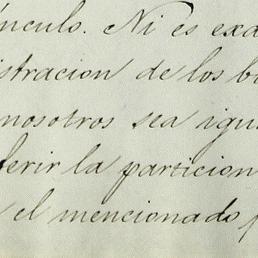 ínculo. Ni es exa
istracion de los b
nosotros sea igu
ferir la particion
el mencionado p